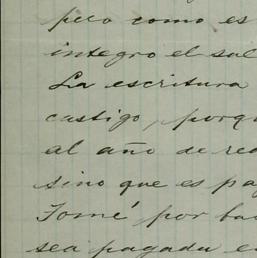 pero como es
integro el sal
La escritura
castigo, porqu
al año de re
sino que es pag
Tomé por ba
sea pagada e